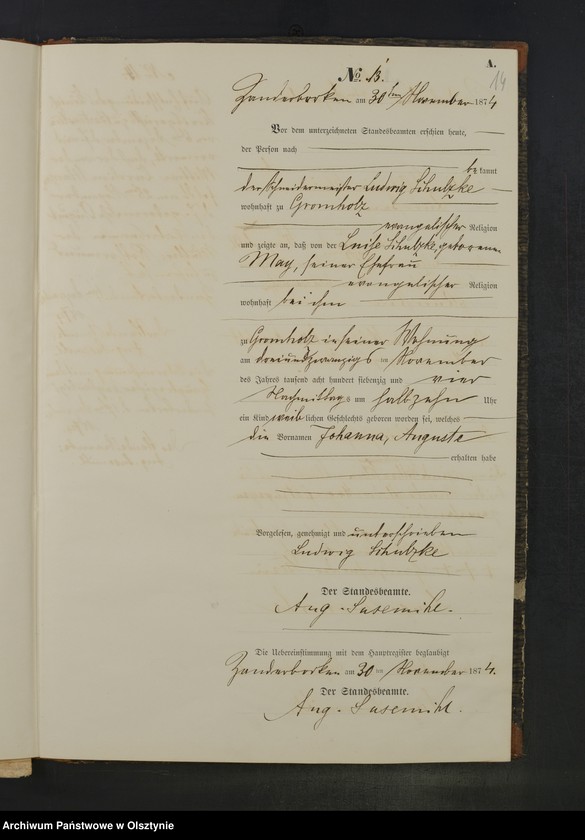 A.
14
No. 13.
Zanderborken am 30ten November 1874
Vor dem unterzeichneten Standesbeamten erschien heute,
der Person nach
bekannt
der Schneidermeister Ludwig Schulzke
wohnhaft zu Gromholz
evangelischer Religion
und zeigte an, daß von der Luise Schulzke, geborenen
May, seiner Ehefrau
evangelischer Religion
wohnhaft bei ihm
zu Gromholz in seiner Wohnung
am dreiundzwanzigs ten November
des Jahres tausend acht hundert siebenzig und vier
Nachmittags um halbzehn Uhr
ein Kind weiblichen Geschlechts geboren worden sei, welches
die Vornamen Johanna, Auguste
erhalten habe
Vorgelesen, genehmigt und unterschrieben
Ludwig Schulzke
Der Standesbeamte.
Aug. Susemihl.
Die Uebereinstimmung mit dem Hauptregister beglaubigt
Zanderborken am 30 ten November 1874.
Der Standesbeamte.
Aug. Susemihl.
Archiwum Państwowe w Olsztynie